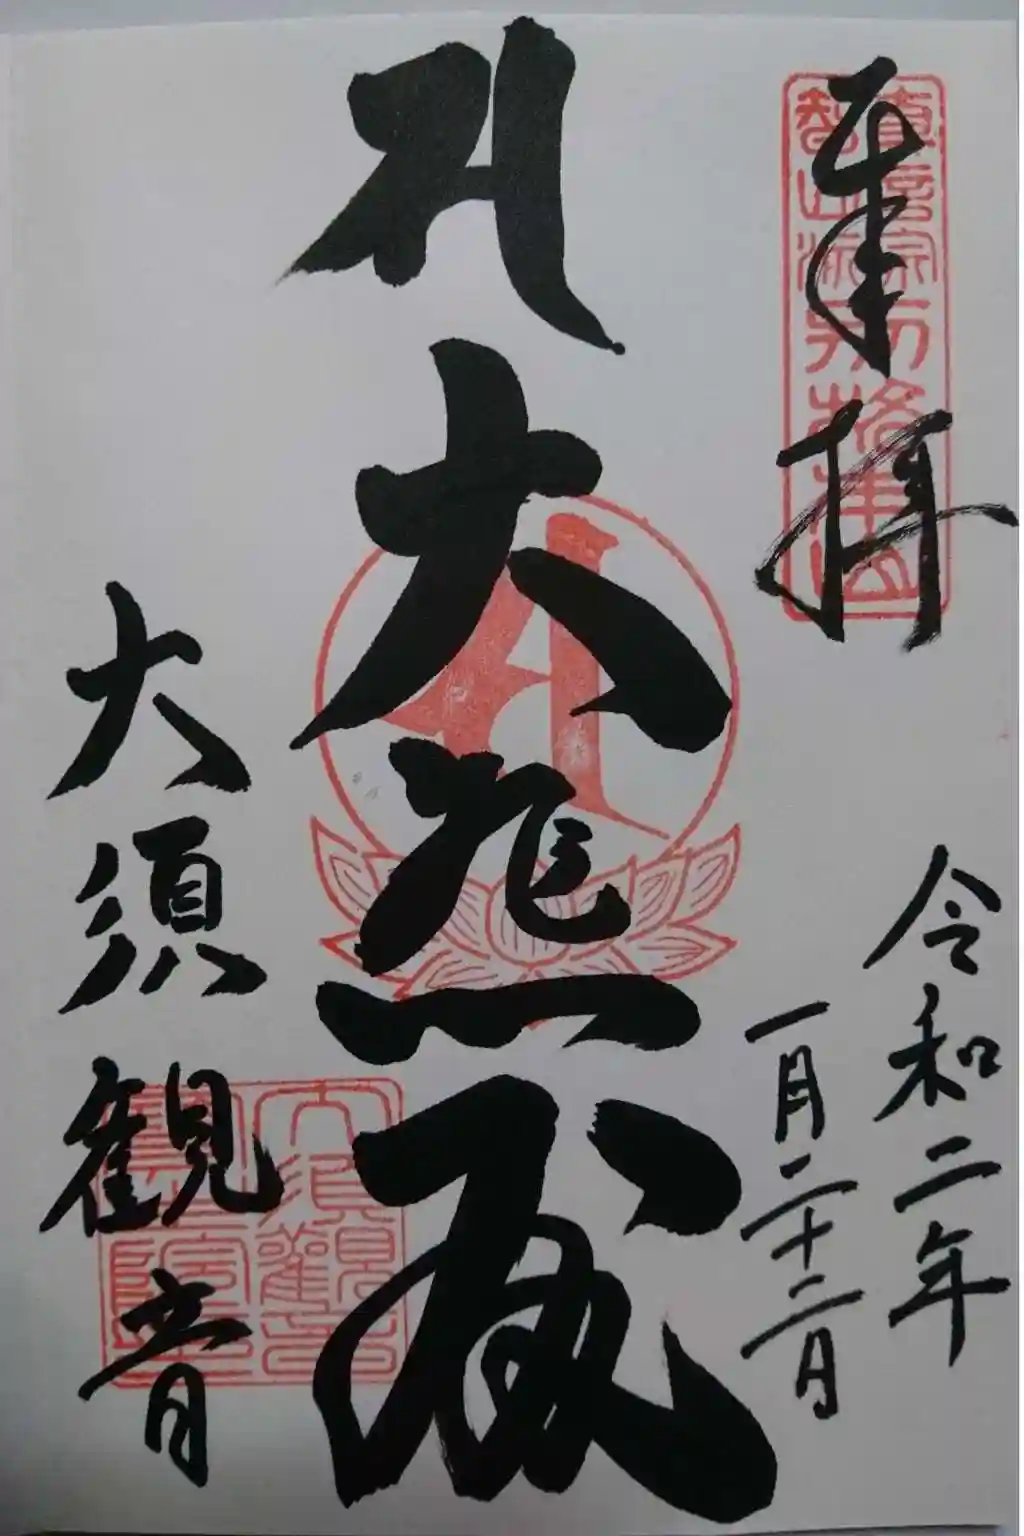 奉拝
真言宗
智山派別格本山
令和二年
一月二十二日
大悲殿
大須観音
大須觀音